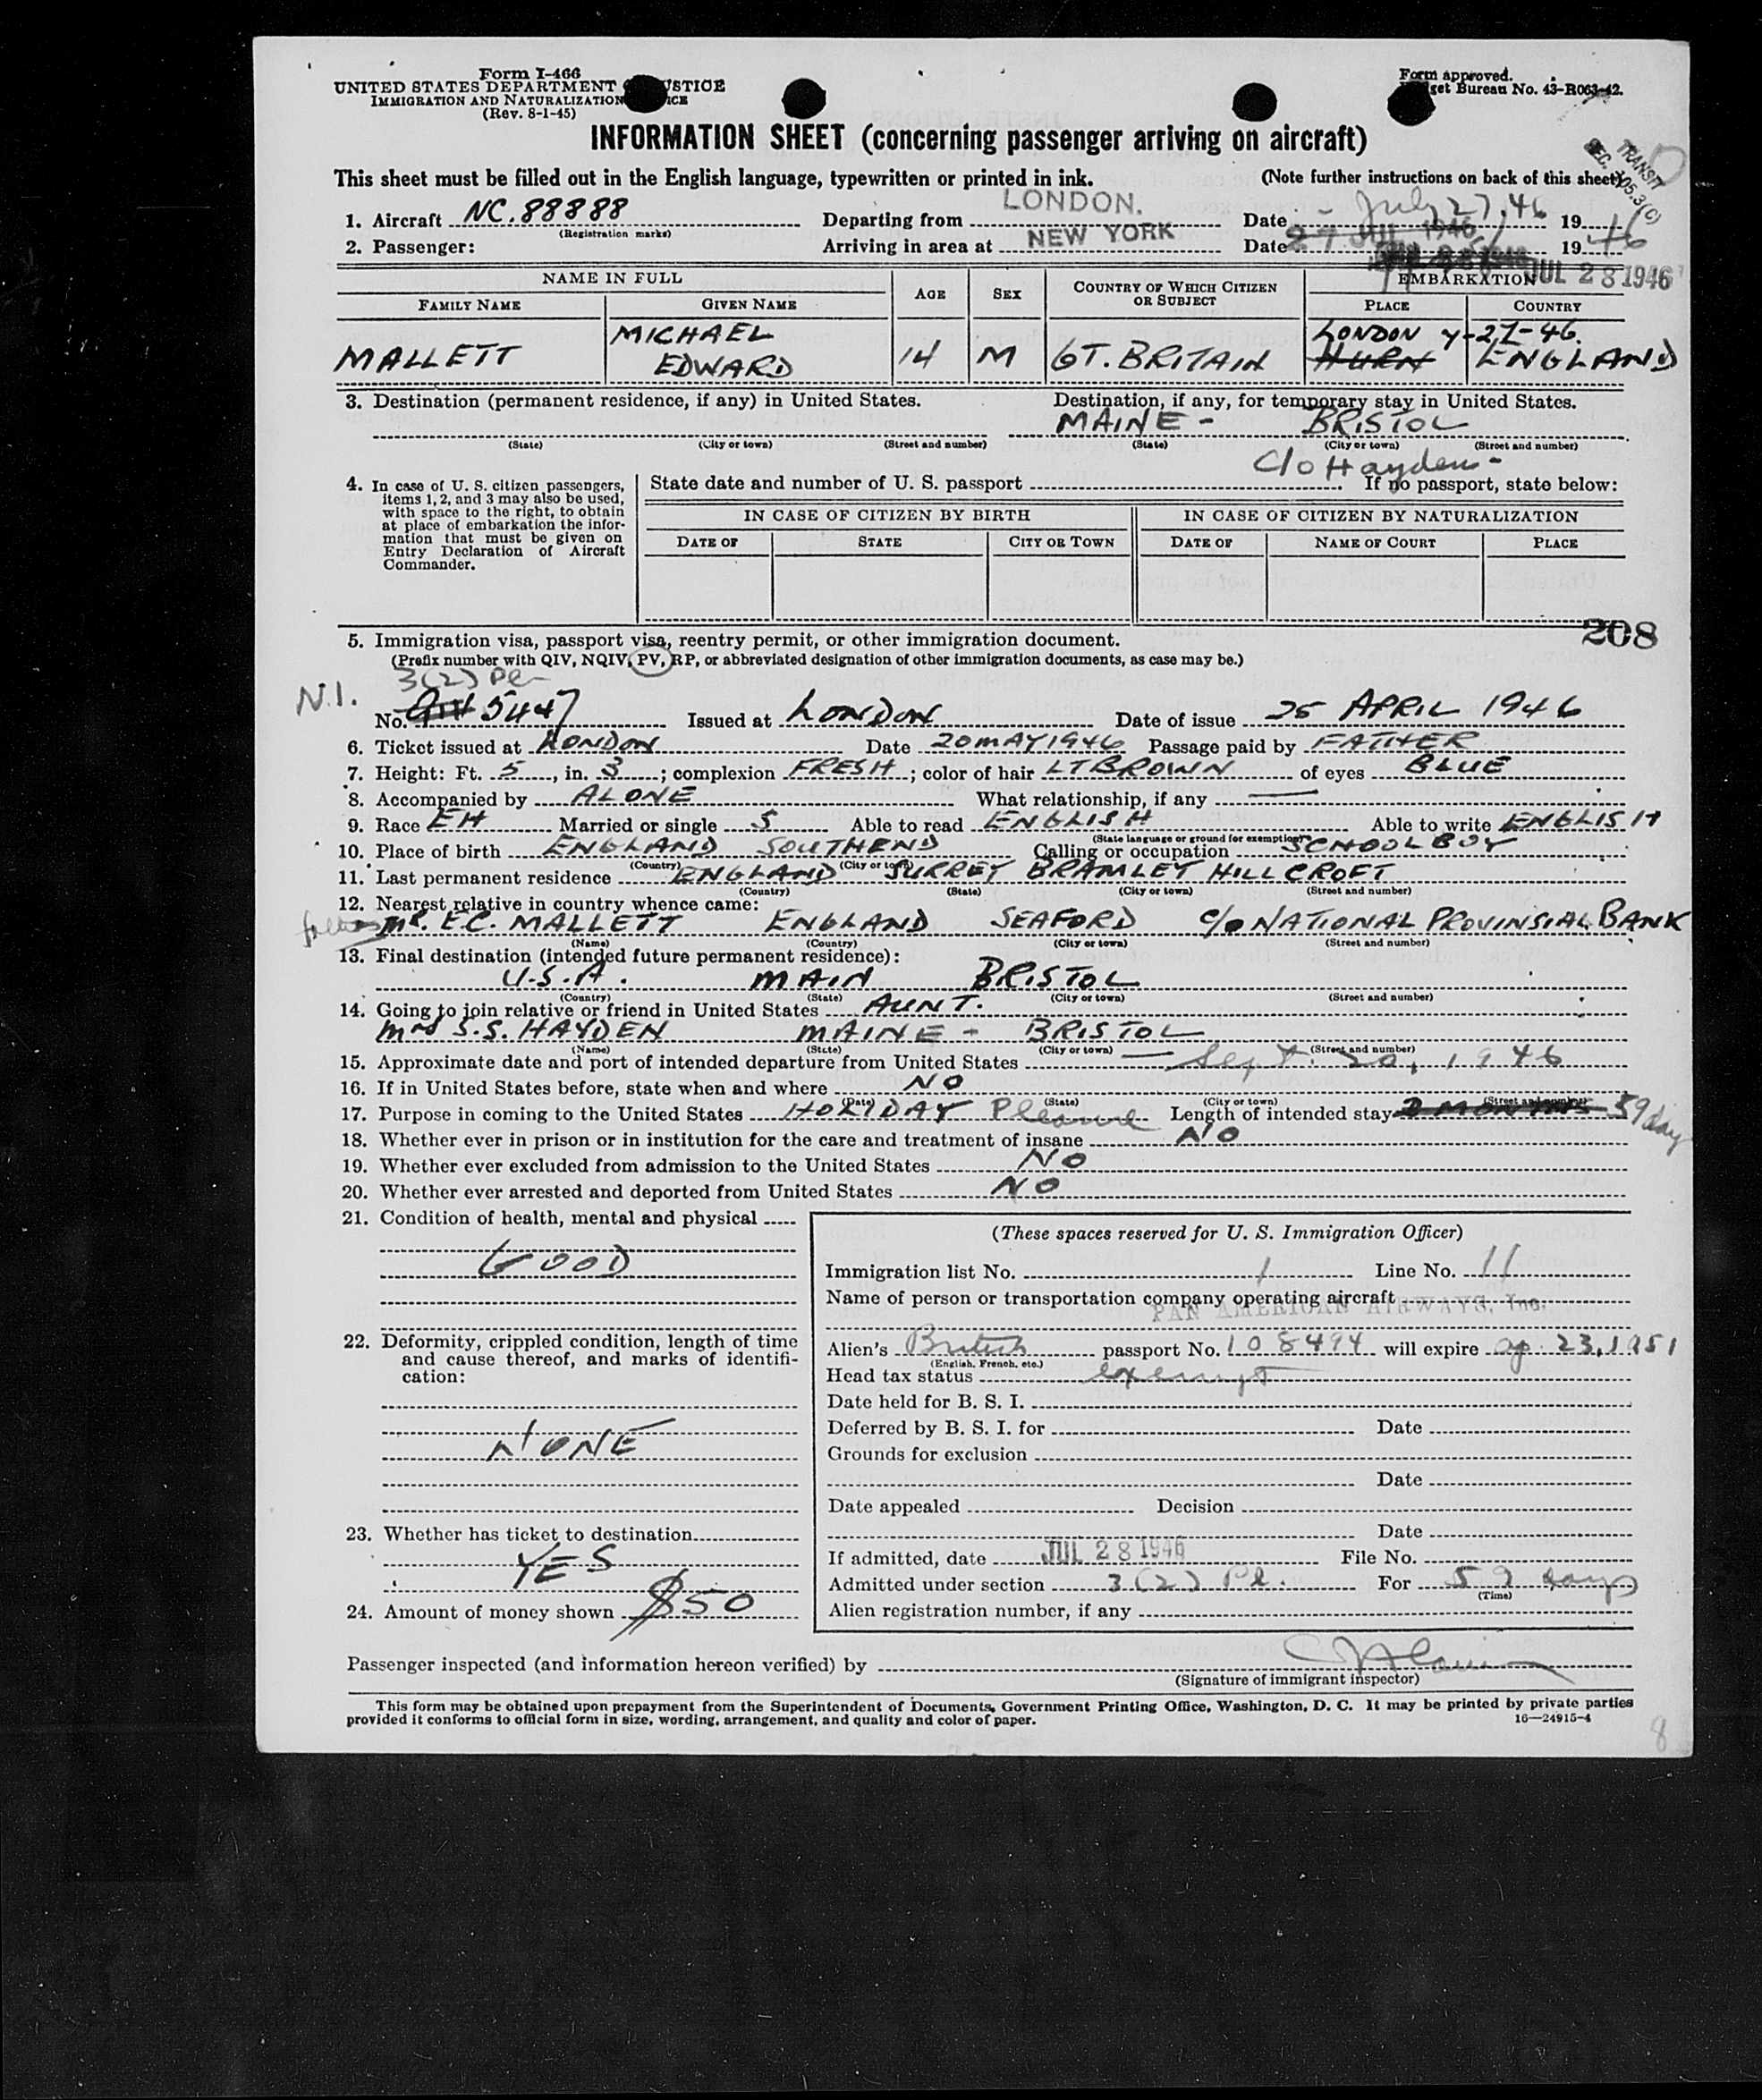 Form I-466
UNITED STATES DEPARTMENT JUSTICE
IMMIGRATION AND NATURALIZATION
(Rev. 8-1-45)
Form approved.
Budget Bureau No. 43-R063-42.
INFORMATION SHEET (concerning passenger arriving on aircraft)
TRANSIT
SEC. 3(C)
This sheet must be filled out in the English language, typewritten or printed in ink. (Note further instructions on back of this sheet)
1. Aircraft NC.88888 Departing from LONDON. Date July 27, 46 1946
(Registration marks)
2. Passenger: Arriving in area at NEW YORK Date 27 JUL 1946 1946
JUL 28 1946
NAME IN FULL AGE SEX COUNTRY OF WHICH CITIZEN OR SUBJECT EMBARKATION
FAMILY NAME GIVEN NAME PLACE COUNTRY
MALLETT MICHAEL EDWARD 14 M GT. BRITAIN LONDON 7-27-46. HURN ENGLAND
3. Destination (permanent residence, if any) in United States. Destination, if any, for temporary stay in United States.
MAINE - BRISTOL
(State) (City or town) (Street and number) (State) (City or town) (Street and number)
C/o Hayden -
4. In case of U. S. citizen passengers, items 1, 2, and 3 may also be used, with space to the right, to obtain at place of embarkation the information that must be given on Entry Declaration of Aircraft Commander.
State date and number of U. S. passport If no passport, state below:
IN CASE OF CITIZEN BY BIRTH IN CASE OF CITIZEN BY NATURALIZATION
DATE OF STATE CITY OR TOWN DATE OF NAME OF COURT PLACE
208
5. Immigration visa, passport visa, reentry permit, or other immigration document.
(Prefix number with QIV, NQIV, PV, RP, or abbreviated designation of other immigration documents, as case may be.)
3(2) Pl
N.I.
No. QIV 5447 Issued at LONDON Date of issue 25 APRIL 1946
6. Ticket issued at LONDON Date 20 MAY 1946 Passage paid by FATHER
7. Height: Ft. 5, in. 3; complexion FRESH; color of hair LT BROWN of eyes BLUE
8. Accompanied by ALONE What relationship, if any —
9. Race EH Married or single S Able to read ENGLISH Able to write ENGLISH
(State language or ground for exemption)
10. Place of birth ENGLAND SOUTHEND Calling or occupation SCHOOLBOY
(Country) (City or town)
11. Last permanent residence ENGLAND SURREY BRAMLEY HILLCROFT
(Country) (State) (City or town) (Street and number)
12. Nearest relative in country whence came:
father MR. E.C. MALLETT ENGLAND SEAFORD C/o NATIONAL PROVINSIAL BANK
(Name) (Country) (City or town) (Street and number)
13. Final destination (intended future permanent residence):
U.S.A. MAIN BRISTOL
(Country) (State) (City or town) (Street and number)
14. Going to join relative or friend in United States AUNT.
Mrs S.S. HAYDEN MAINE - BRISTOL
(Name) (State) (City or town) (Street and number)
15. Approximate date and port of intended departure from United States — Sept. 20, 1946
16. If in United States before, state when and where NO
(Date) (State) (City or town) (Street and number)
17. Purpose in coming to the United States HOLIDAY Pleasure Length of intended stay 2 MONTHS 59 days
18. Whether ever in prison or in institution for the care and treatment of insane NO
19. Whether ever excluded from admission to the United States NO
20. Whether ever arrested and deported from United States NO
21. Condition of health, mental and physical
GOOD
22. Deformity, crippled condition, length of time and cause thereof, and marks of identification:
NONE
23. Whether has ticket to destination
YES
24. Amount of money shown $50
(These spaces reserved for U. S. Immigration Officer)
Immigration list No. 1 Line No. 11
Name of person or transportation company operating aircraft
PAN AMERICAN AIRWAYS, Inc.
Alien's British passport No. 108494 will expire Ap. 23, 1951
(English, French, etc.)
Head tax status exempt
Date held for B. S. I.
Deferred by B. S. I. for Date
Grounds for exclusion
Date
Date appealed Decision
Date
If admitted, date JUL 28 1946 File No.
Admitted under section 3(2) Pl. For 59 days
(Time)
Alien registration number, if any
Passenger inspected (and information hereon verified) by
(Signature of immigrant inspector)
This form may be obtained upon prepayment from the Superintendent of Documents, Government Printing Office, Washington, D. C. It may be printed by private parties
provided it conforms to official form in size, wording, arrangement, and quality and color of paper. 16—24915-4
8